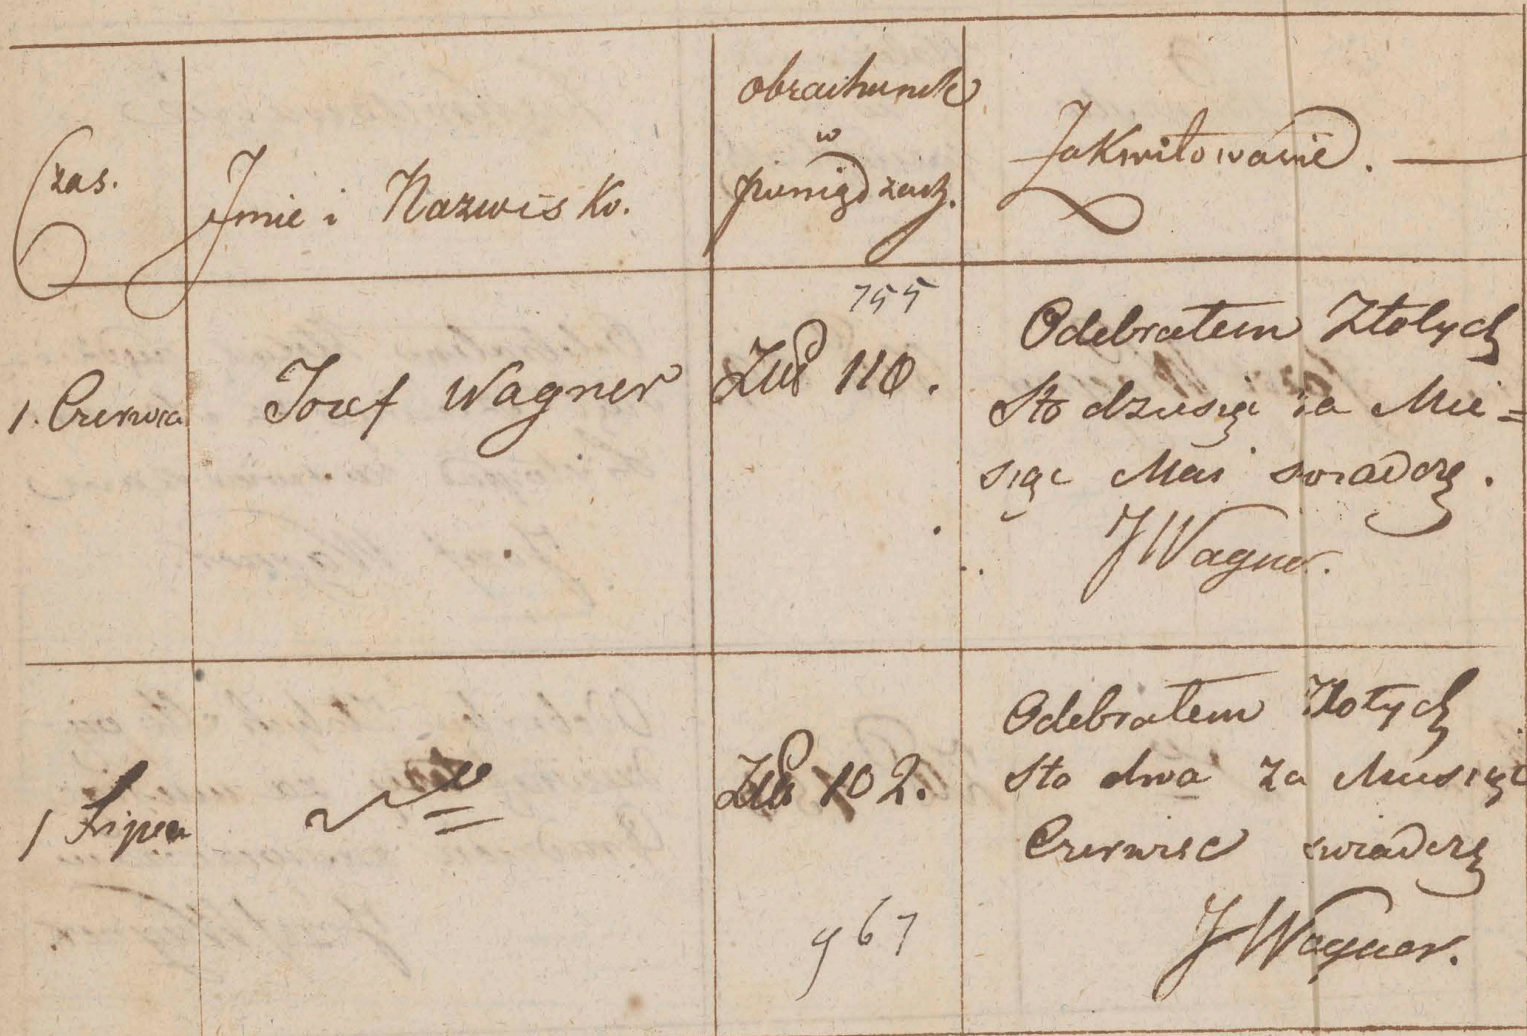 Czas.
Jmie i Nazwisko.
obrachunek
w
pieniądzach.
Zakwitowanie.
1. Czerwca
Jozef Wagner
755
Złp 110.
Odebratem Złotych
Sto dziesięć za Mie=
siąc Mai swiadczę.
J Wagner.
1 Lipca
Złp 102.
967
Odebratem Złotych
sto dwa za Miesiąc
Czerwiec swiadczę
J Wagner.